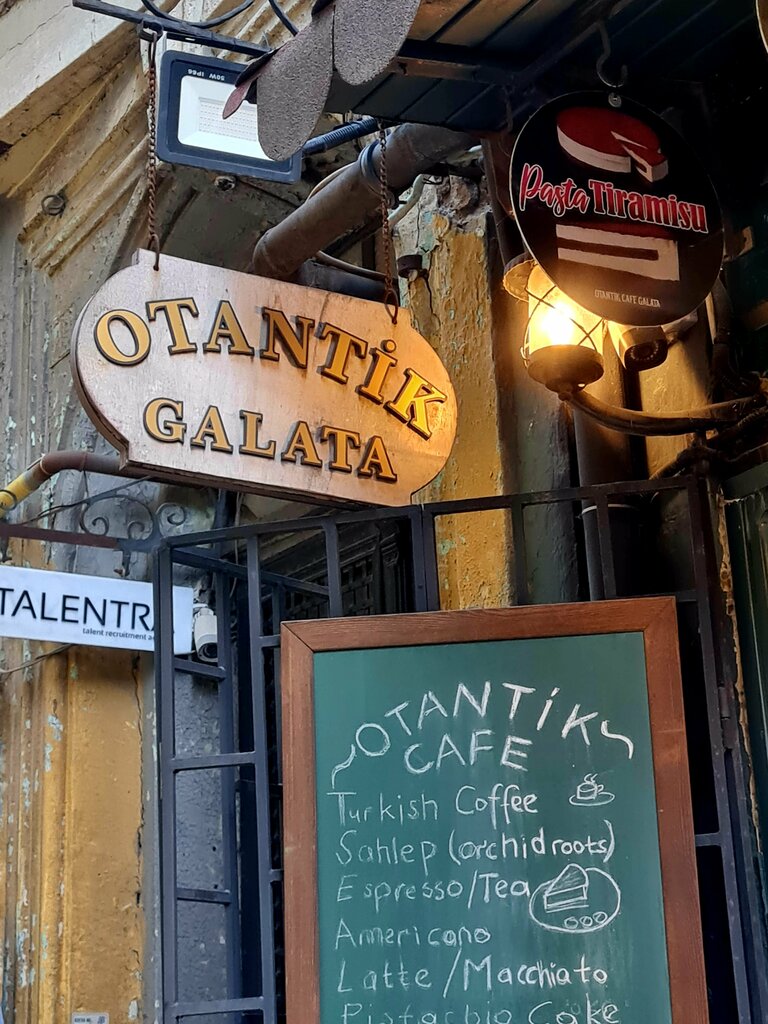 50W IP66
Pasta Tiramisu
OTANTIK CAFE GALATA
OTANTİK
GALATA
TALENTR
talent recruitment a
OTANTİK
CAFE
Turkish Coffee
Sahlep (orchid roots)
Espresso/Tea
Americano
Latte/Macchiato
Pistachio Cake